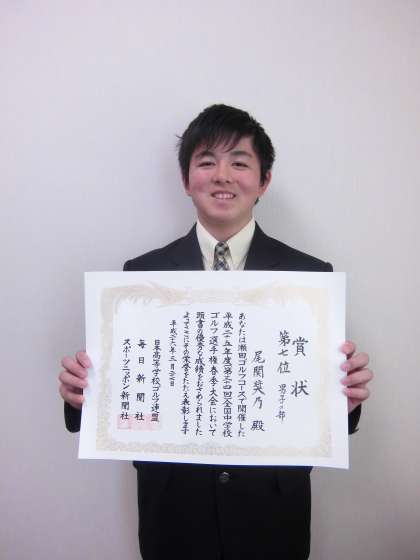 賞状
第七位 男子の部
尾関奨乃 殿
あなたは瀬田ゴルフコースで開催した
平成二十五年度(第三十四回)全国中学校
ゴルフ選手権春季大会において
頭書の優秀な成績をおさめられました
よってここにその栄誉をたたえ表彰します
日本高等学校ゴルフ連盟
毎日新聞社
スポーツニッポン新聞社